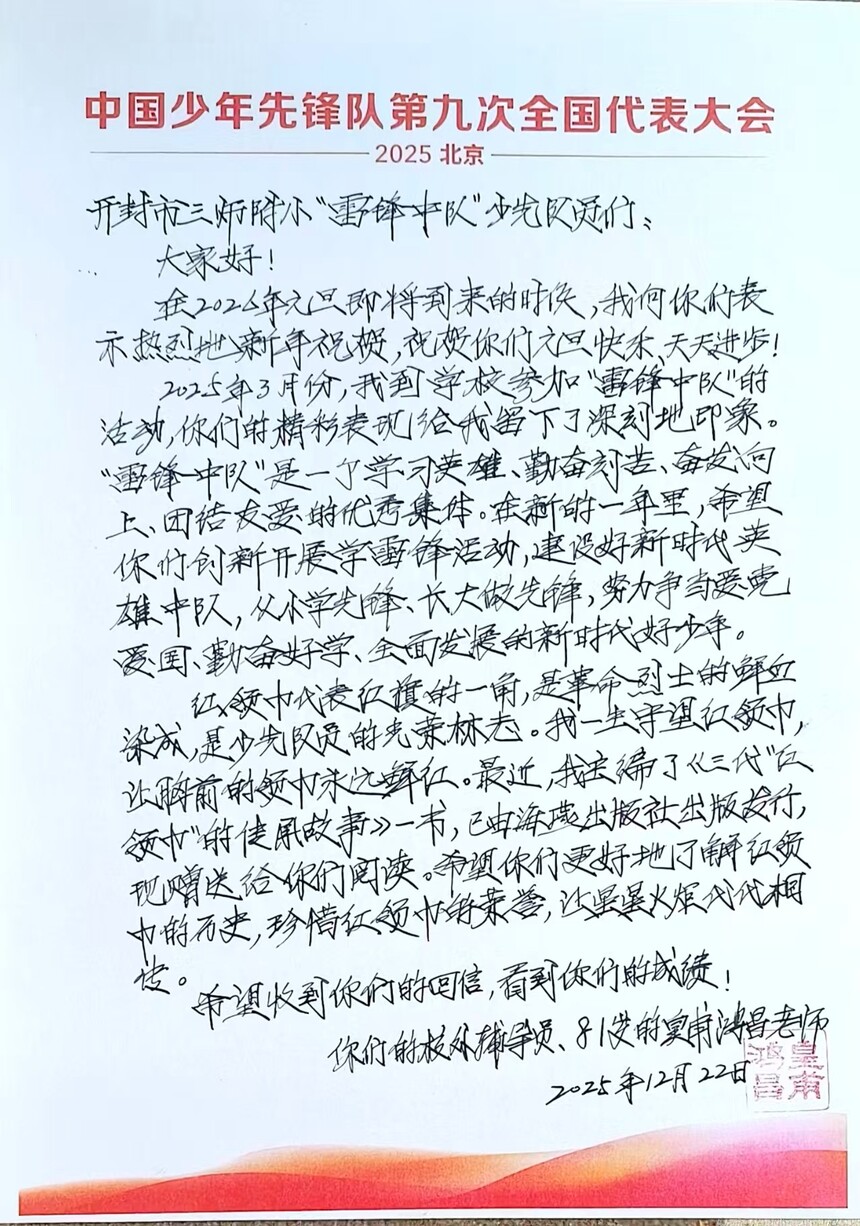 中国少年先锋队第九次全国代表大会
2025 北京
开封市三师附小“雷锋中队”少先队员们:
大家好!
在2026年元旦即将到来的时候,我向你们表
示热烈地新年祝贺,祝贺你们元旦快乐、天天进步!
2025年3月份,我到学校参加“雷锋中队”的
活动,你们的精彩表现给我留下了深刻地印象。
“雷锋中队”是一个学习英雄、勤奋刻苦、奋发向
上、团结友爱的优秀集体。在新的一年里,希望
你们创新开展学雷锋活动,建设好新时代英
雄中队,从小学先锋、长大做先锋,努力争当爱党
爱国、勤奋好学、全面发展的新时代好少年。
红领巾代表红旗的一角,是革命烈士的鲜血
染成,是少先队员的光荣标志。我一生守望红领巾,
让胸前的领巾永远鲜红。最近,我主编了《三代“红
领巾”的使用故事》一书,已由海燕出版社出版发行,
现赠送给你们阅读。希望你们更好地了解红领
巾的历史,珍惜红领巾的荣誉,让星星火炬代代相
传。
希望收到你们的回信,看到你们的成绩!
你们的校外辅导员、81岁的皇甫鸿昌老师
2025年12月22日
皇甫鸿昌